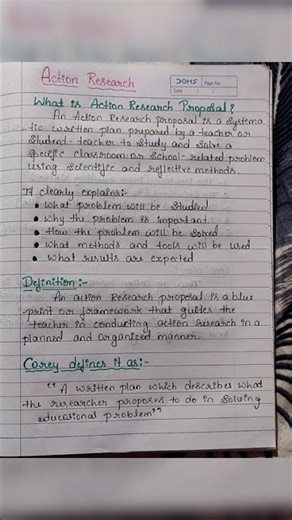 Action Research
DOMS Page No.
Date / /
What is Action Research Proposal?
An Action Research proposal is a systema
tic written plan prepared by a teacher or
student-teacher to study and solve a
specific classroom or school-related problem
using scientific and reflective methods.
It clearly explains:-
• What problem will be studied
• Why the problem is important
• How the problem will be solved
• What methods and tools will be used
• What results are expected
Definition:-
An action Research proposal is a blue
print or framework that guides the
teacher in conducting action research in a
planned and organized manner.
Corey defines it as:-
"A written plan which describes what
the researcher proposes to do in solving
educational problem"